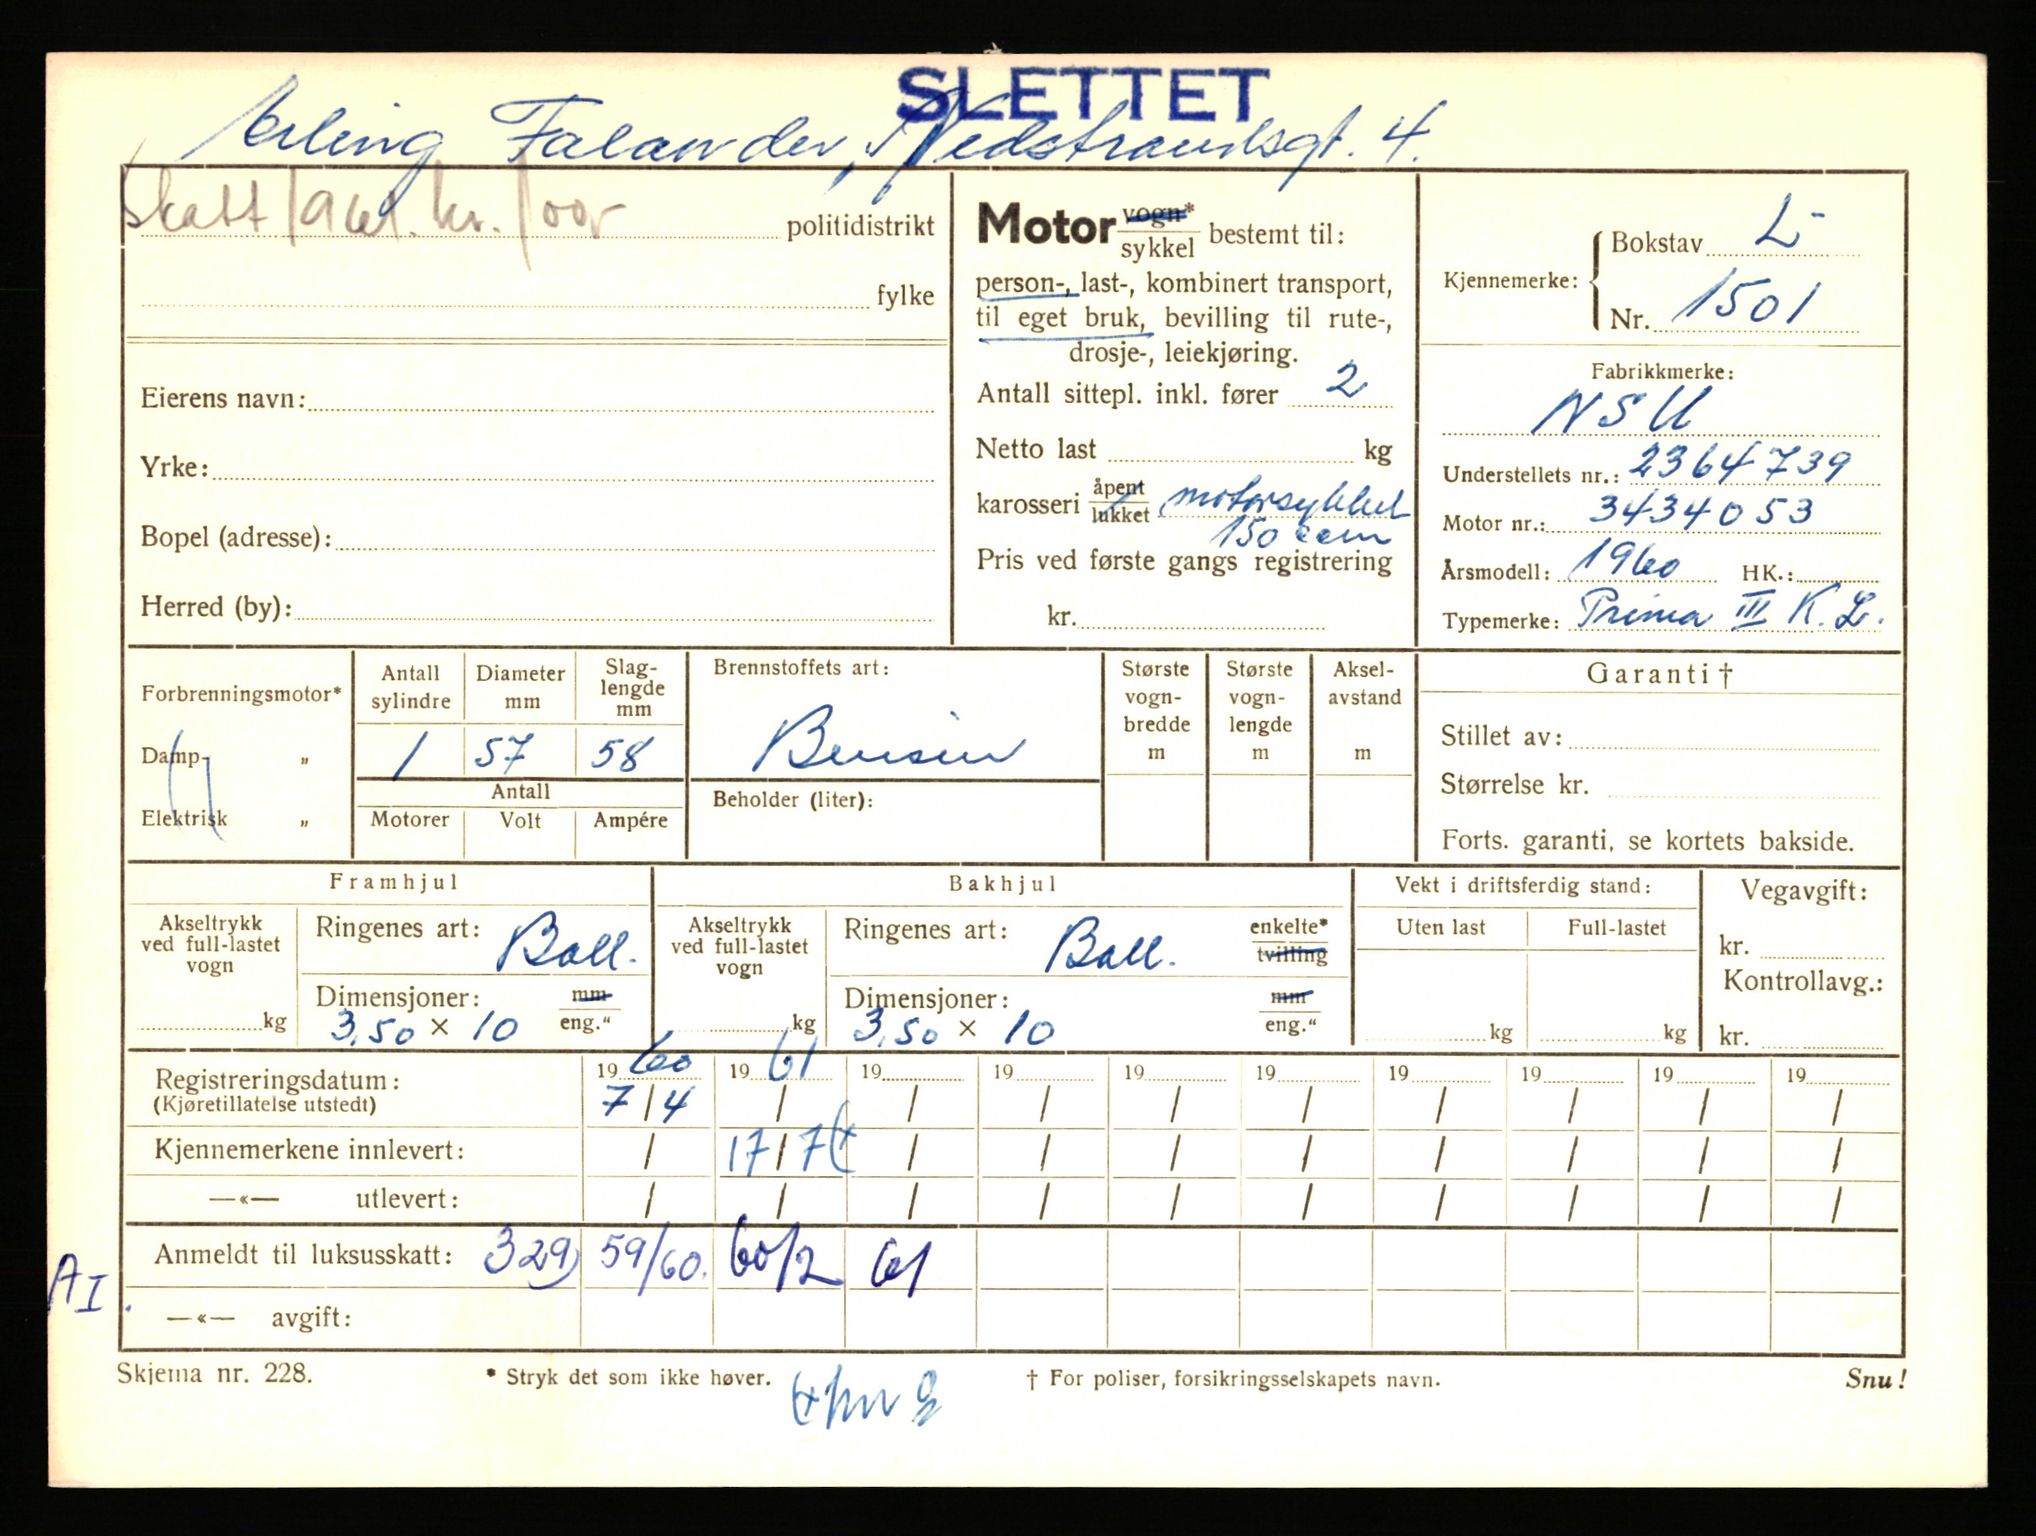 SLETTET
Erling Falander, Nedstrandsgt. 4.
Skatt 1961. kr. 100,-
politidistrikt
fylke
Eierens navn:
Yrke:
Bopel (adresse):
Herred (by):
Motor vogn* / sykkel bestemt til:
person-, last-, kombinert transport,
til eget bruk, bevilling til rute-,
drosje-, leiekjøring.
Antall sittepl. inkl. fører 2
Netto last kg
karosseri åpent / lukket motorsykkel
150 ccm
Pris ved første gangs registrering
kr.
Kjennemerke: { Bokstav L-
Nr. 1501
Fabrikkmerke:
NSU
Understellets nr.: 2364739
Motor nr.: 3434053
Årsmodell: 1960 HK.:
Typemerke: Prima III K.L.
Forbrenningsmotor*
Damp- „
Elektrisk „
Antall sylindre Diameter mm Slag-lengde mm
1 57 58
Antall
Motorer Volt Ampére
Brennstoffets art:
Bensin
Beholder (liter):
Største vogn-bredde m
Største vogn-lengde m
Aksel-avstand m
Garanti †
Stillet av:
Størrelse kr.
Forts. garanti, se kortets bakside.
Framhjul
Akseltrykk ved full-lastet vogn
kg
Ringenes art: Ball.
Dimensjoner: mm / eng.“
3,50 × 10
Bakhjul
Akseltrykk ved full-lastet vogn
kg
Ringenes art: Ball. enkelte* / tvilling
Dimensjoner: mm / eng.“
3,50 × 10
Vekt i driftsferdig stand:
Uten last Full-lastet
kg kg
Vegavgift:
kr.
Kontrollavg.:
kr.
Registreringsdatum: 1960 1961 19 19 19 19 19 19 19 19
(Kjøretillatelse utstedt) 7/4 / / / / / / / / /
Kjennemerkene innlevert: / 17/7 / / / / / / / /
—«— utlevert: / / / / / / / / / /
Anmeldt til luksusskatt: 329) 59/60. 60/2 61
AI.
—«— avgift:
Skjema nr. 228. * Stryk det som ikke høver. † For poliser, forsikringsselskapets navn. Snu!